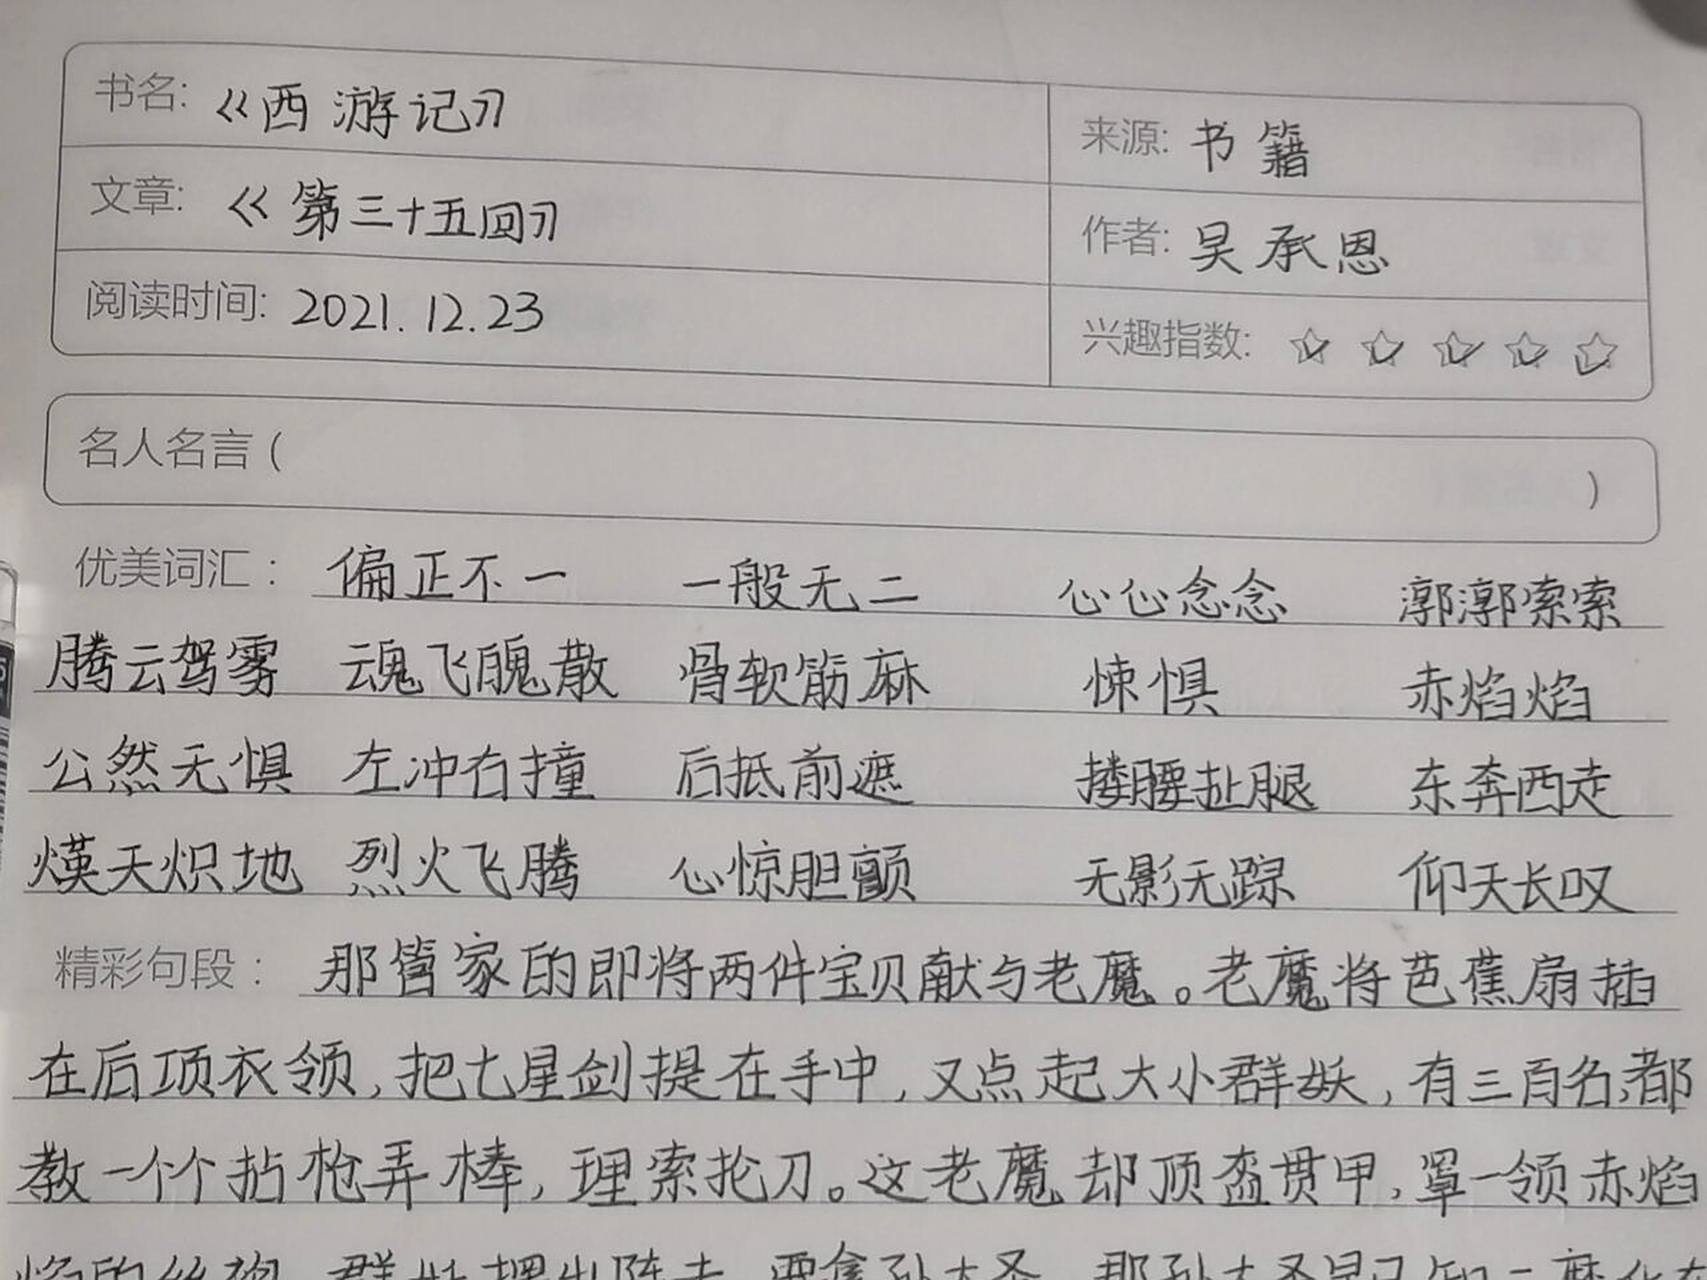 书名:《西游记》
来源:书籍
文章:《第三十五回》
作者:吴承恩
阅读时间:2021.12.23
兴趣指数:☆☆☆☆☆
名人名言( )
优美词汇: 偏正不一 一般无二 心心念念 漷漷索索
腾云驾雾 魂飞魄散 骨软筋麻 悚惧 赤焰焰
公然无惧 左冲右撞 后抵前遮 搂腰扯腿 东奔西走
煐天炽地 烈火飞腾 心惊胆颤 无影无踪 仰天长叹
精彩句段: 那管家的即将两件宝贝献与老魔。老魔将芭蕉扇插
在后项衣领,把七星剑提在手中,又点起大小群妖,有三百名,都
教一个个拈枪弄棒,理索抡刀。这老魔却顶盔贯甲,罩一领赤焰
焰的丝袍。群妖摆出阵去,要拿孙大圣。那孙大圣早已知二魔化在